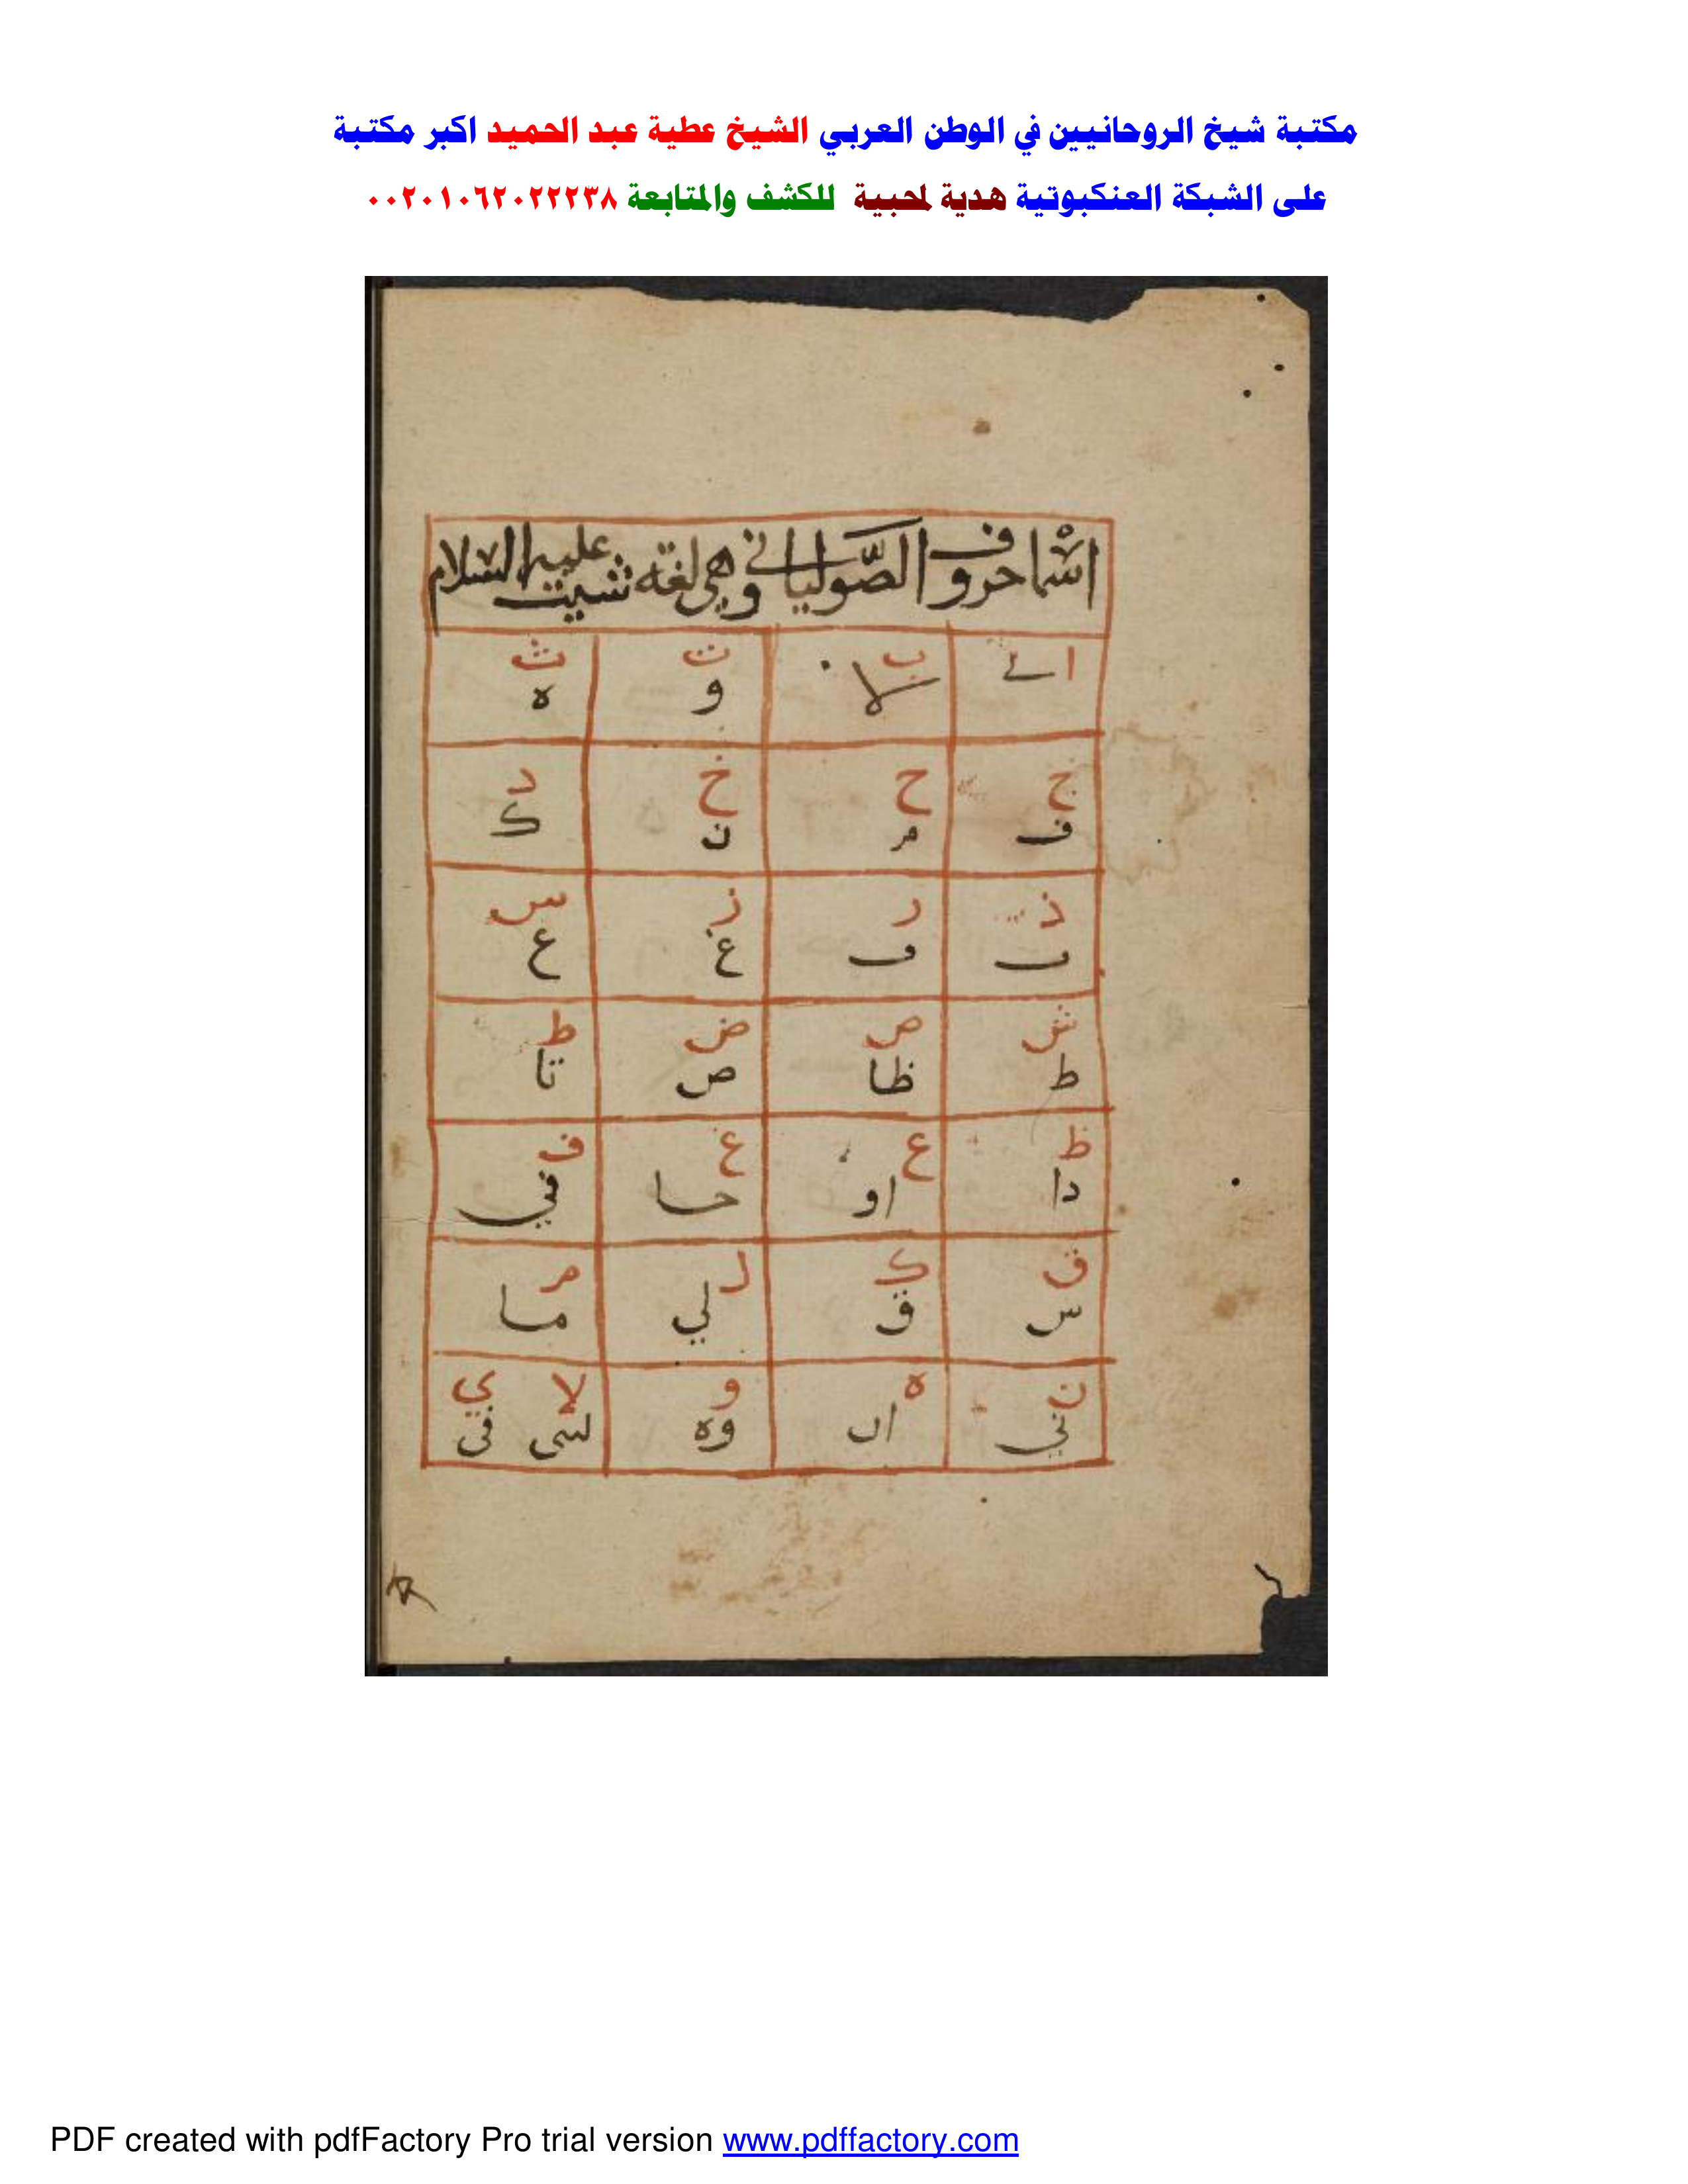 مكتبة شيخ الروحانيين في الوطن العربي الشيخ عطية عبد الحميد اكبر مكتبة
على الشبكة العنكبوتية هدية لمحبية للكشف والمتابعة ٠٠٢٠١٠٦٢٠٢٢٢٣٨
اسْما حروف الصَّوليانى وهي لغة شيث عليه السلام
ا ب ت ث
لا و ه
ج ح خ د
ف م ن ك
ذ ر ز س
ف غ ع
ش ص ض ط
ط ظا ص تا
ظ ع غ ف
دا او حا في
ق ك ل م
س ق لي ما
ن ه و لا ي
ني ان وه فى
PDF created with pdfFactory Pro trial version www.pdffactory.com